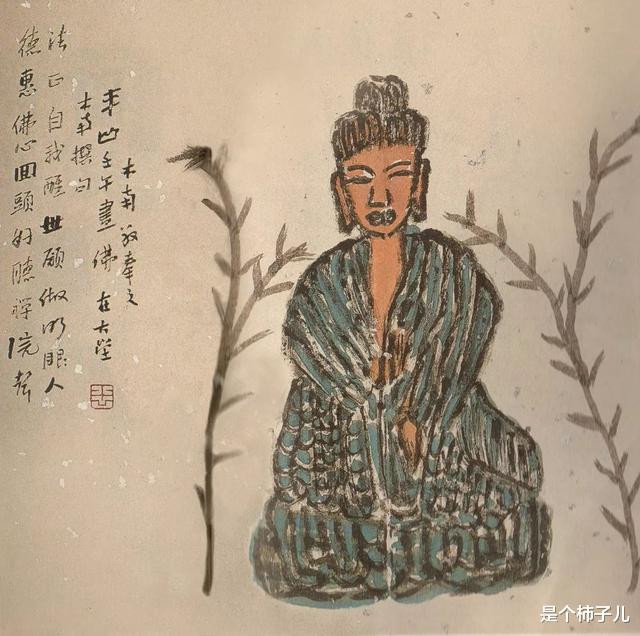 德惠佛心回頭好聽禪院聲
法正自我醒世願做明眼人
木南撰句
半山壬午畫佛在大
木南敬奉之
是个柿子儿